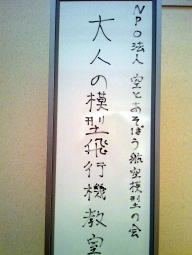 NPO法人 空とあそぼう航空模型の会
大人の模型飛行機教室